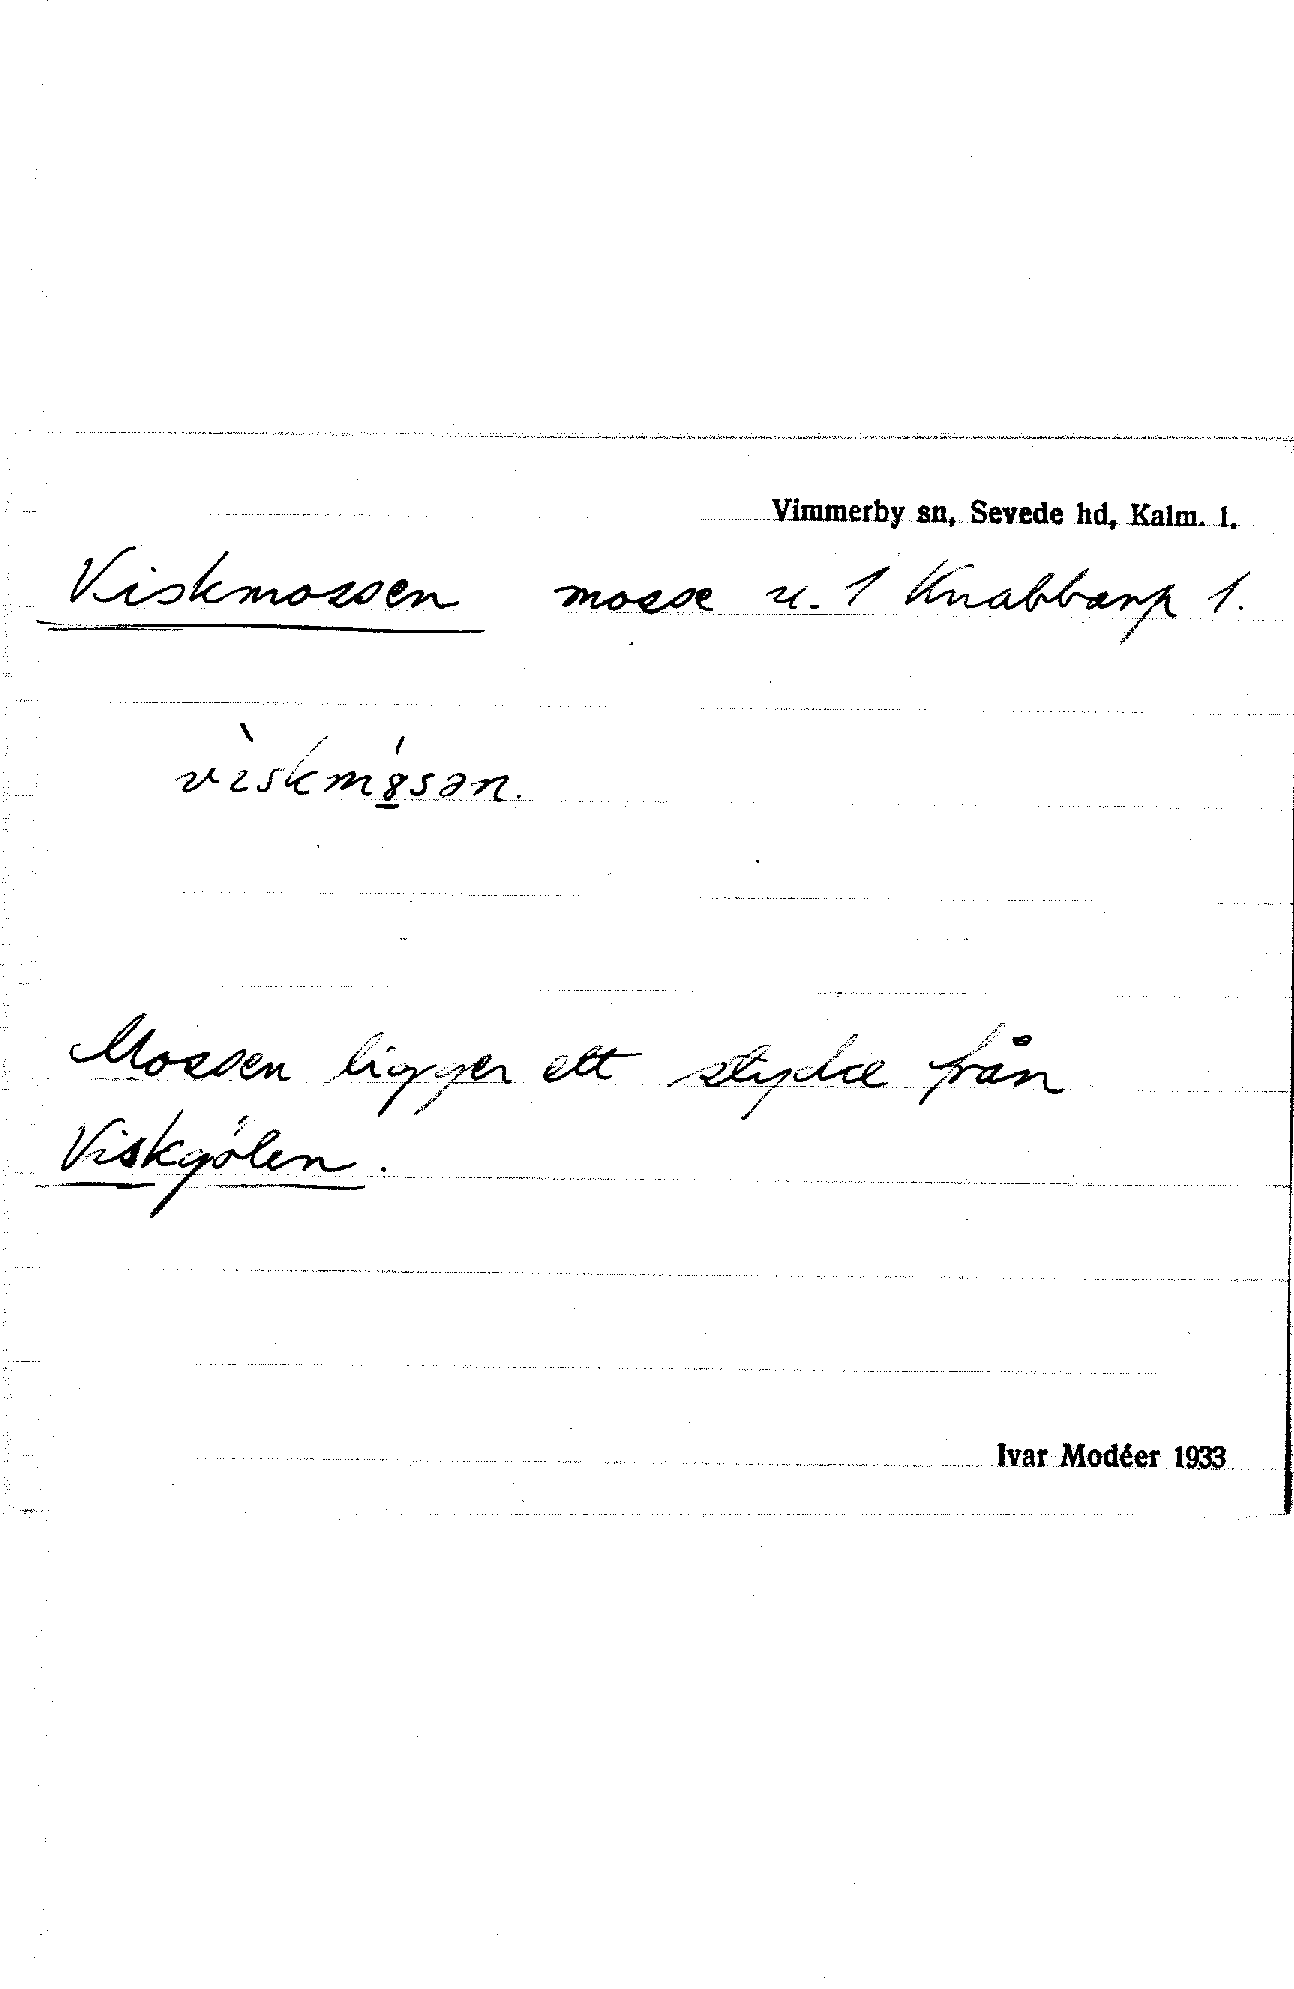 Vimmerby sn, Sevede hd, Kalm. l.
Viskmossen mosse u. 1 Knabbarp 1.
vìskm8́sən.
Mossen ligger ett stycke från
Viskgölen.
Ivar Modéer 1933